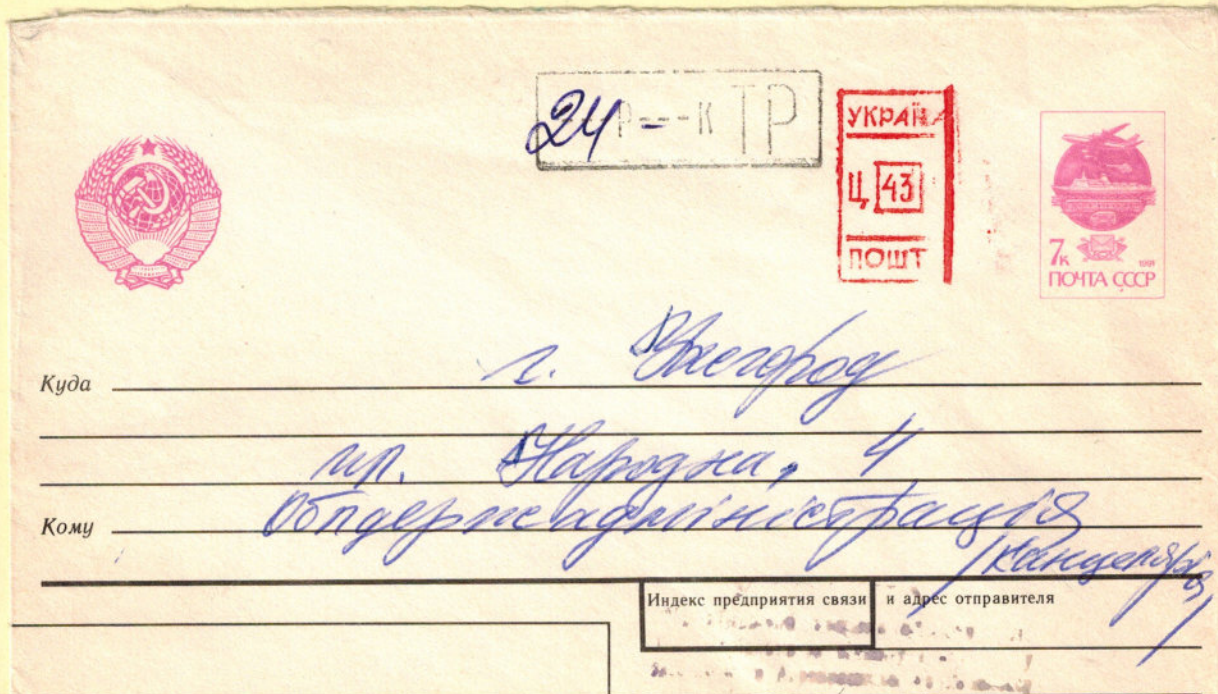 24 Р---К ТР
УКРАЇНА
Ц 43
ПОШТ
7к 1991
ПОЧТА СССР
Куда г. Ужгород
пл. Народна, 4
Кому Облдержадміністрація
/канцелярія/
Индекс предприятия связи и адрес отправителя